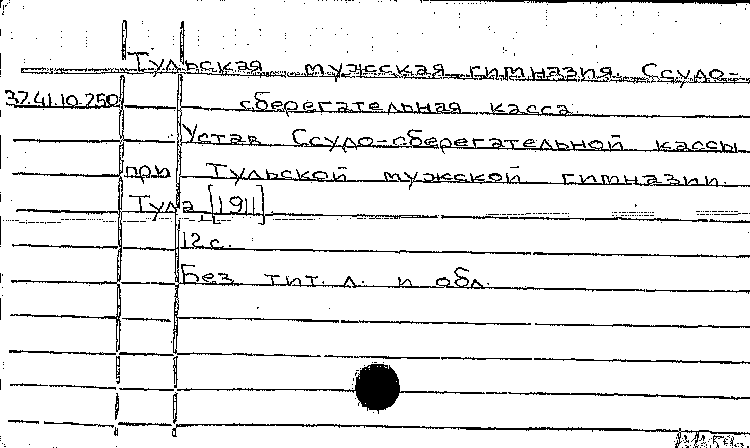 Тульская мужская гимназия. Ссудо-
37.41.10.250 сберегательная касса.
Устав Ссудо-сберегательной кассы
при Тульской мужской гимназии.
Тула, [1911]
12 с.
Без тит. л. и обл.